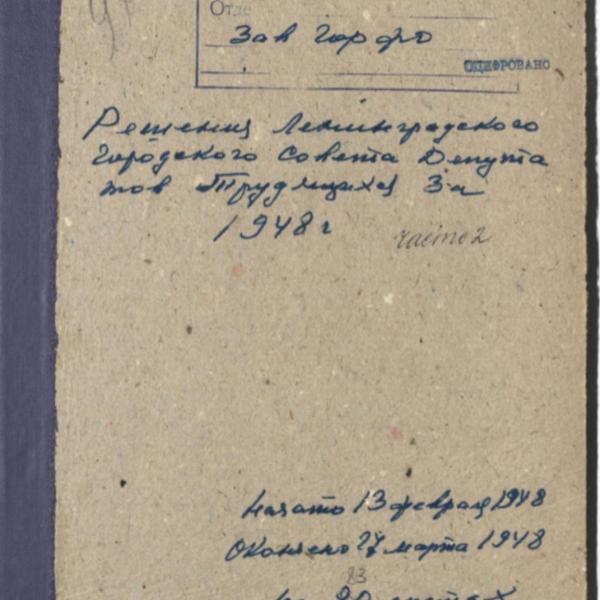 Отде
Зав Горфо
ОЦИФРОВАНО
Решения Ленинградского
Городского Совета Депута
тов Трудящихся За
1948 г
часть 2
Начато 13 февраля 1948
Окончено 27 марта 1948
83
На листах